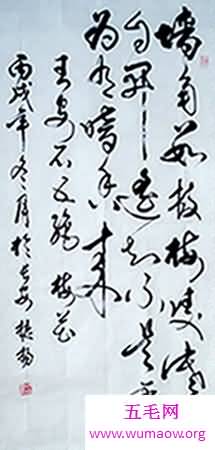 墙角数枝梅凌寒
自开遥知不是雪
为有暗香来
王安石五绝 梅花
丙戌年冬月于长安
五毛网
www.wumaow.org